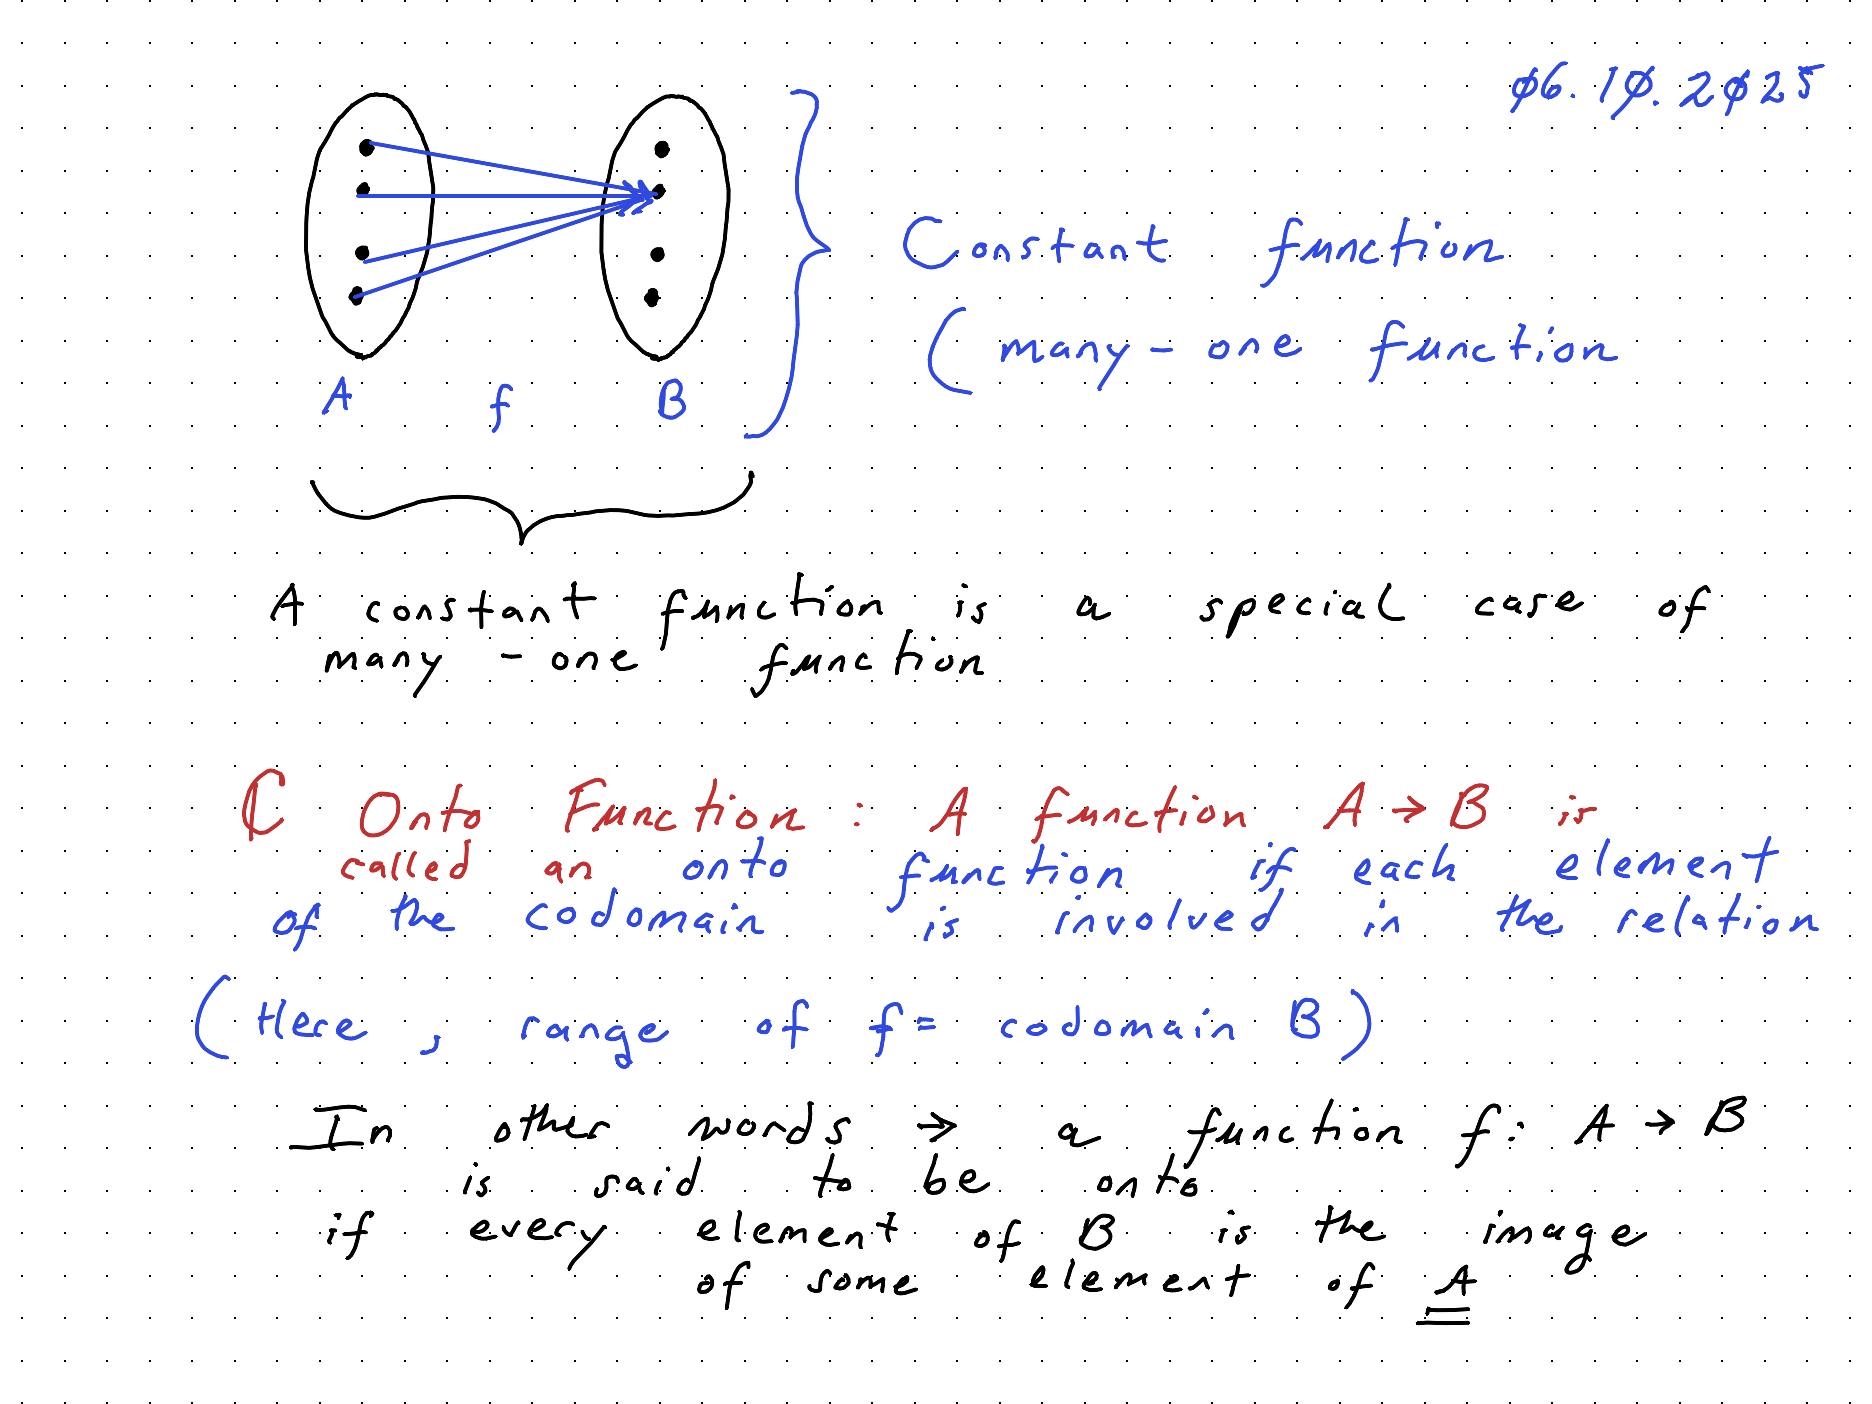 06.10.2025
Constant function
(many-one function
A f B
A constant function is a special case of
many-one function
C Onto Function : A function A → B is
called an onto function if each element
of the codomain is involved in the relation
(Here, range of f = codomain B)
In other words → a function f: A → B
is said to be onto
if every element of B is the image
of some element of A